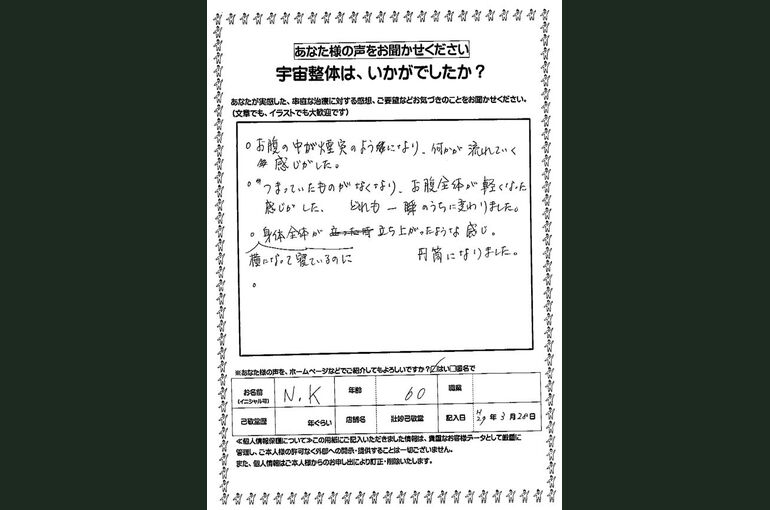 あなた様の声をお聞かせください
宇宙整体は、いかがでしたか？
あなたが実感した、串庭な治療に対する感想、ご要望などお気づきのことをお聞かせください。
（文章でも、イラストでも大歓迎です）
○お腹の中が煙突のよう様になり、何かが流れていく
感じがした。
○つまっていたものがなくなり、お腹全体が軽くなった
感じがした、 どれも一瞬のうちに変わりました。
○身体全体が 立ち上がったような感じ。
横になって寝ているのに 円筒になりました。
○
※あなた様の声を、ホームページなどでご紹介してもよろしいですか？☑はい□匿名で
お名前 （イニシャル可） N.K 年齢 60 職業
己敬堂歴 年ぐらい 店舗名 壮妙己敬堂 記入日 H29年3月28日
≪個人情報保護について≫この用紙にご記入いただきました情報は、貴重なお客様データとして厳重に
管理し、ご本人様の許可なく外部への開示・提供することは一切ございません。
また、個人情報はご本人様からのお申し出により訂正・削除いたします。